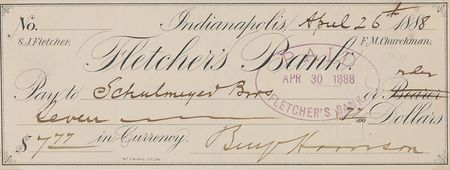 No. Indianapolis, April 26th 1888
S.J. Fletcher. F.M. Churchman.
Fletcher's Bank.
PAID
APR 30 1888
FLETCHER'S BANK
order
Pay to Schulmeyer Bros. or Bearer
Seven 77/100 Dollars
$7.77 in Currency. Benj Harrison